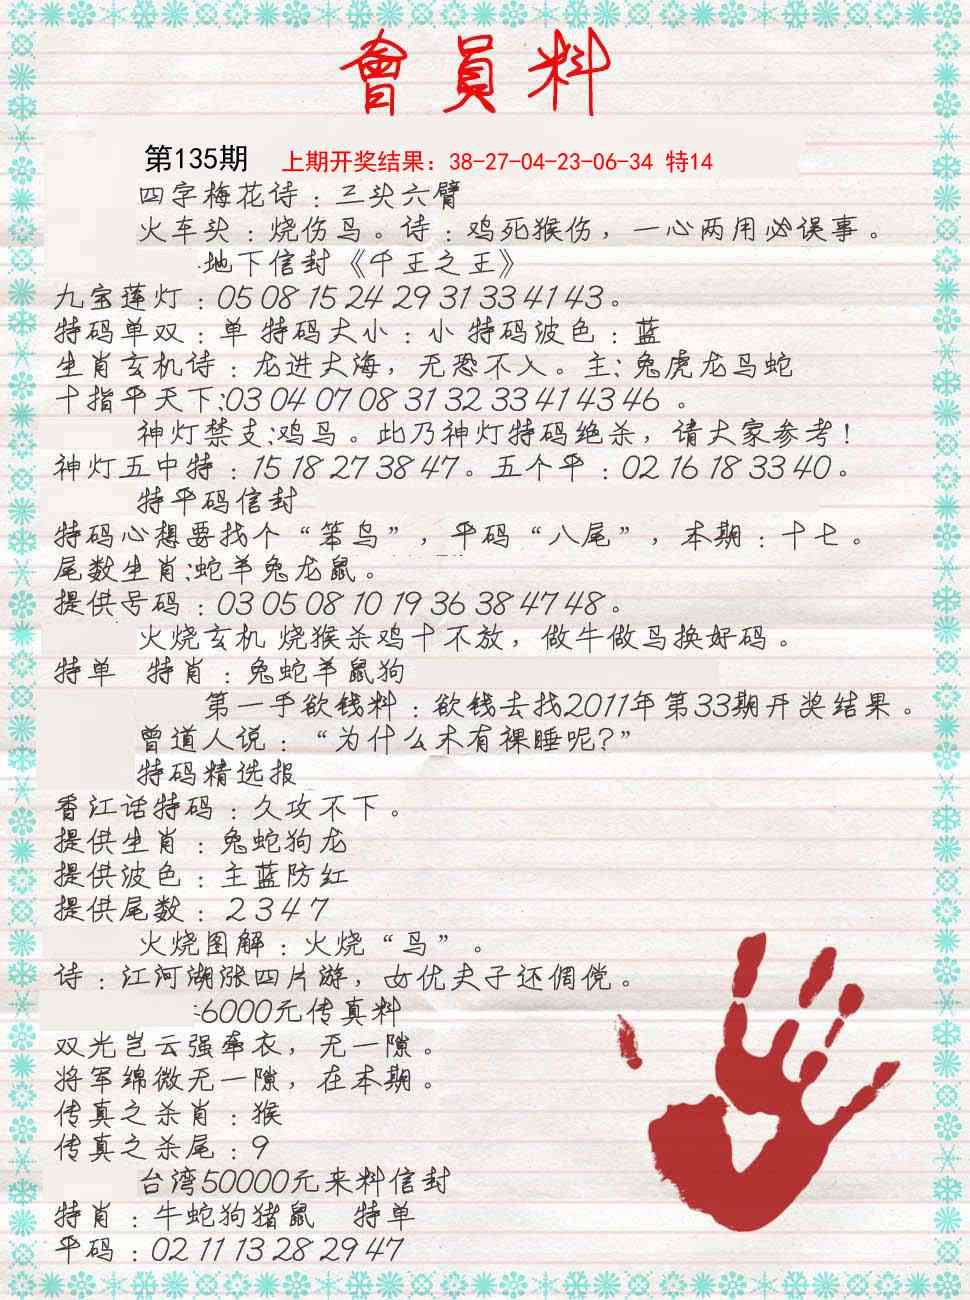 會員料
第135期 上期开奖结果：38-27-04-23-06-34 特14
四字梅花诗：三头六臂
火车头：烧伤鸟。诗：鸡死猴伤，一心两用必误事。
地下信封《千王之王》
九宝莲灯：05 08 15 24 29 31 33 41 43。
特码单双：单 特码大小：小 特码波色：蓝
生肖玄机诗：龙进大海，无恐不入。主: 兔虎龙鸟蛇
十指平天下:03 04 07 08 31 32 33 41 43 46 。
神灯禁支:鸡鸟。此乃神灯特码绝杀，请大家参考！
神灯五中特：15 18 27 38 47。五个平：02 16 18 33 40。
特平码信封
特码心想要找个“笨鸟”，平码“八尾”，本期：十七。
尾数生肖:蛇羊兔龙鼠。
提供号码：03 05 08 10 19 36 38 47 48。
火烧玄机 烧猴杀鸡十不放，做牛做鸟换好码。
特单 特肖：兔蛇羊鼠狗
第一手欲钱料：欲钱去找2011年第33期开奖结果。
曾道人说：“为什么木有裸睡呢?”
特码精选报
香江话特码：久攻不下。
提供生肖：兔蛇狗龙
提供波色：主蓝防红
提供尾数：2 3 4 7
火烧图解：火烧“鸟”。
诗：江河湖涨四片游，女优夫子还倜傥。
:6000元传真料
双光岂云强牵衣，无一隙。
将军绵微无一隙，在本期。
传真之杀肖：猴
传真之杀尾：9
台湾50000元来料信封
特肖：牛蛇狗猪鼠 特单
平码：02 11 13 28 29 47